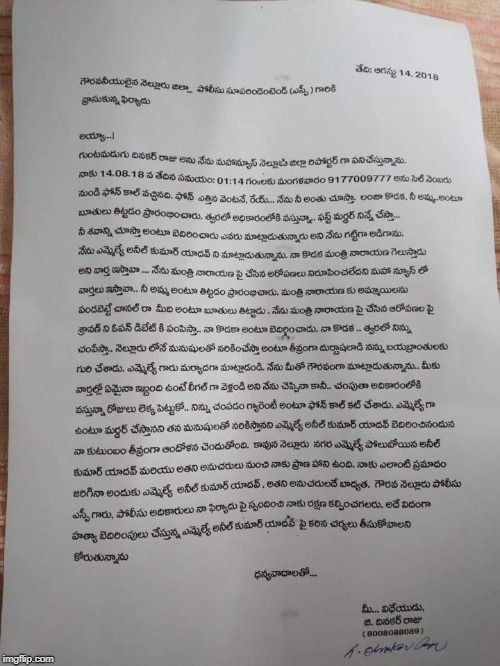 తేది: ఆగస్టు 14, 2018
గౌరవనీయులైన నెల్లూరు జిల్లా పోలీసు సూపరిండెంటెండ్ (ఎస్పీ) గారికి
వ్రాసుకున్న ఫిర్యాదు
అయ్యా...!
గుంటమడుగు దినకర్ రాజు అను నేను మహాన్యూస్ నెల్లూరు జిల్లా రిపోర్టర్ గా పనిచేస్తున్నాను.
నాకు 14.08.18 వ తేదిన సమయం: 01:14 గం౹౹లకు మంగళవారం 9177009777 అను సెల్ నెంబరు
నుండి ఫోన్ కాల్ వచ్చినది. ఫోన్ ఎత్తిన వెంటనే, రేయ్... నేను నీ అంతు చూస్తా, లంజా కొడక, నీ అమ్మ..అంటూ
బూతులు తిట్టడం ప్రారంభించారు. త్వరలో అధికారంలోకి వస్తున్నా.. ఫస్ట్ మర్డర్ నిన్నే చేస్తా...
నీ శవాన్ని చూస్తా అంటూ బెదిరించారు ఎవరు మాట్లాడుతున్నారు అని నేను గట్టిగా అడిగాను.
నేను ఎమ్మెల్యే అనీల్ కుమార్ యాదవ్ ని మాట్లాడుతున్నాను. నా కొడక మంత్రి నారాయణ గెలుస్తాడు
అని వార్త ఇస్తావా ... నేను మంత్రి నారాయణ పై చేసిన ఆరోపణలు నిరూపించలేదని మహా న్యూస్ లో
వార్తలు ఇస్తావా.. నీ అమ్మ అంటూ తిట్టడం ప్రారంభించారు. మంత్రి నారాయణ కు అమ్మాయిలను
పండబెట్టే చానల్ రా మీది అంటూ బూతులు తిట్టాడు. నేను మంత్రి నారాయణ పై చేసిన ఆరోపణల పై
శ్రావణ్ ని ఓపెన్ డిబేట్ కి పంపిస్తా.. నా కొడకా అంటూ బెదిర్గించాడు. నా కొడక .. త్వరలో నిన్ను
చంపేస్తా.. నెల్లూరు లోనే మనుషులతో నరికించేస్తా అంటూ తీవ్రంగా దుర్భాషలాడి నన్ను భయభ్రాంతులకు
గురి చేశాడు. ఎమ్మెల్యే గారు మర్యాదగా మాట్లాడండి. నేను మీతో గౌరవంగా మాట్లాడుతున్నాను.. మీకు
వార్తల్లో ఏమైనా ఇబ్బంది ఉంటే లీగల్ గా వెళ్లండి అని నేను చెప్పినా కాని.. చంపుతా అదికారంలోకి
వస్తున్నా రోజులు లెక్క పెట్టుకో.. నిన్ను చంపడం గ్యారెంటీ అంటూ ఫోన్ కాల్ కట్ చేశాడు. ఎమ్మెల్యే గా
ఉంటూ మర్డర్ చేస్తానని తన మనుషులతో నరికిస్తానని ఎమ్మెల్యే అనీల్ కుమార్ యాదవ్ బెదిరించినందున
నా కుటుంబం తీవ్రంగా ఆందోళన చెందుతోంది. కావున నెల్లూరు నగర ఎమ్మెల్యే పోలుబోయిన అనీల్
కుమార్ యాదవ్ మరియు అతని అనుచరులు నుంచి నాకు ప్రాణ హాని ఉంది. నాకు ఎలాంటి ప్రమాదం
జరిగినా అందుకు ఎమ్మెల్యే అనీల్ కుమార్ యాదవ్, అతని అనుచరులదే బాధ్యత. గౌరవ నెల్లూరు పోలీసు
ఎస్పీ గారు, పోలీసు అదికారులు నా ఫిర్యాదు పై స్పందించి నాకు రక్షణ కల్పించగలరు. అదే విదంగా
హత్యా బెదిరింపులు చేస్తున్న ఎమ్మెల్యే అనీల్ కుమార్ యాదవ్ పై కఠిన చర్యలు తీసుకోవాలని
కోరుతున్నాను
ధన్యవాదాలతో...
మీ... విధేయుడు,
జి. దినకర్ రాజు
(8008088089)
imgflip.com